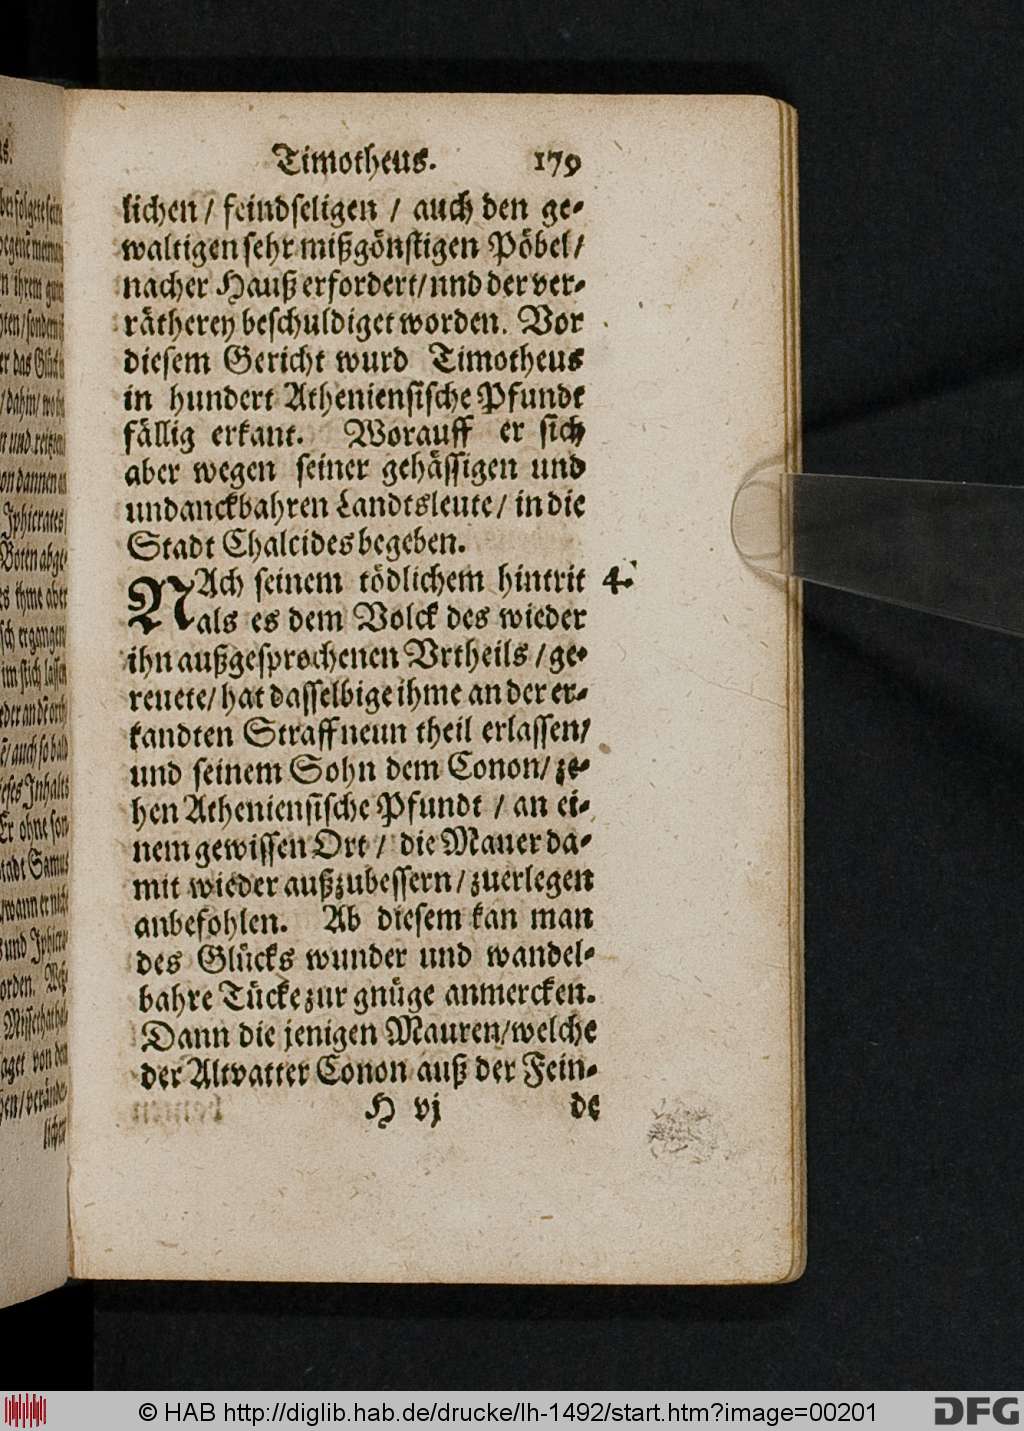 Timotheus. 179
lichen / feindseligen / auch den ge-
waltigen sehr mißgönstigen Pöbel /
nacher Hauß erfordert / unnd der ver-
rätherey beschuldiget worden. Vor
diesem Gericht wurd Timotheus
in hundert Atheniensische Pfundt
fällig erkant. Worauff er sich
aber wegen seiner gehässigen und
undanckbahren Landtsleute / in die
Stadt Chalcides begeben.
NAch seinem tödlichem hintrit 4.
als es dem Volck des wieder
ihn außgesprochenen Vrtheils / ge-
reuete / hat dasselbige ihme an der er-
kandten Straff neun theil erlassen /
und seinem Sohn dem Conon / ze-
hen Atheniensische Pfundt / an ei-
nem gewissen Ort / die Mauer da-
mit wieder außzubessern / zuerlegen
anbefohlen. Ab diesem kan man
des Glücks wunder und wandel-
bahre Tücke zur gnüge anmercken.
Dann die jenigen Mauren / welche
der Altvatter Conon auß der Fein-
H vj de
© HAB http://diglib.hab.de/drucke/lh-1492/start.htm?image=00201
DFG